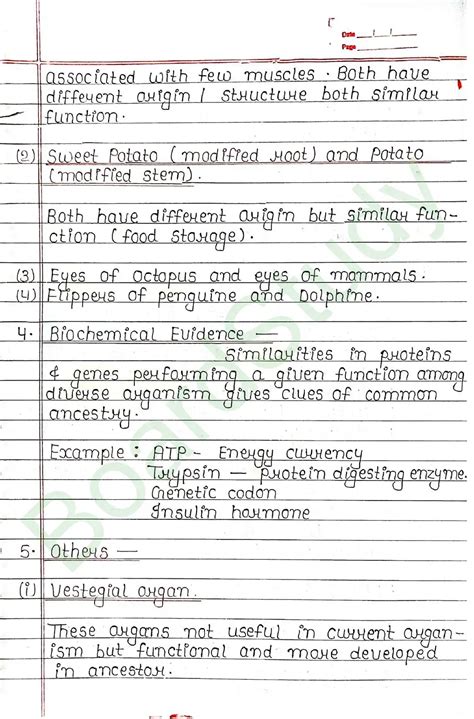 Date / /
Page
associated with few muscles. Both have
different origin / structure both similar
function.
(2) Sweet Potato (modified root) and Potato
(modified stem).
Both have different origin but similar fun-
ction (food storage).
(3) Eyes of Octopus and eyes of mammals.
(4) Flippers of penguine and Dolphine.
4. Biochemical Evidence —
Similarities in proteins
& genes performing a given function among
diverse organism gives clues of common
ancestry.
Example : ATP - Energy currency
Trypsin — protein digesting enzyme.
Genetic codon
Insulin hormone
5. Others —
(i) Vestegial organ.
These organs not useful in current organ-
ism but functional and more developed
in ancestor.
BoardStudy